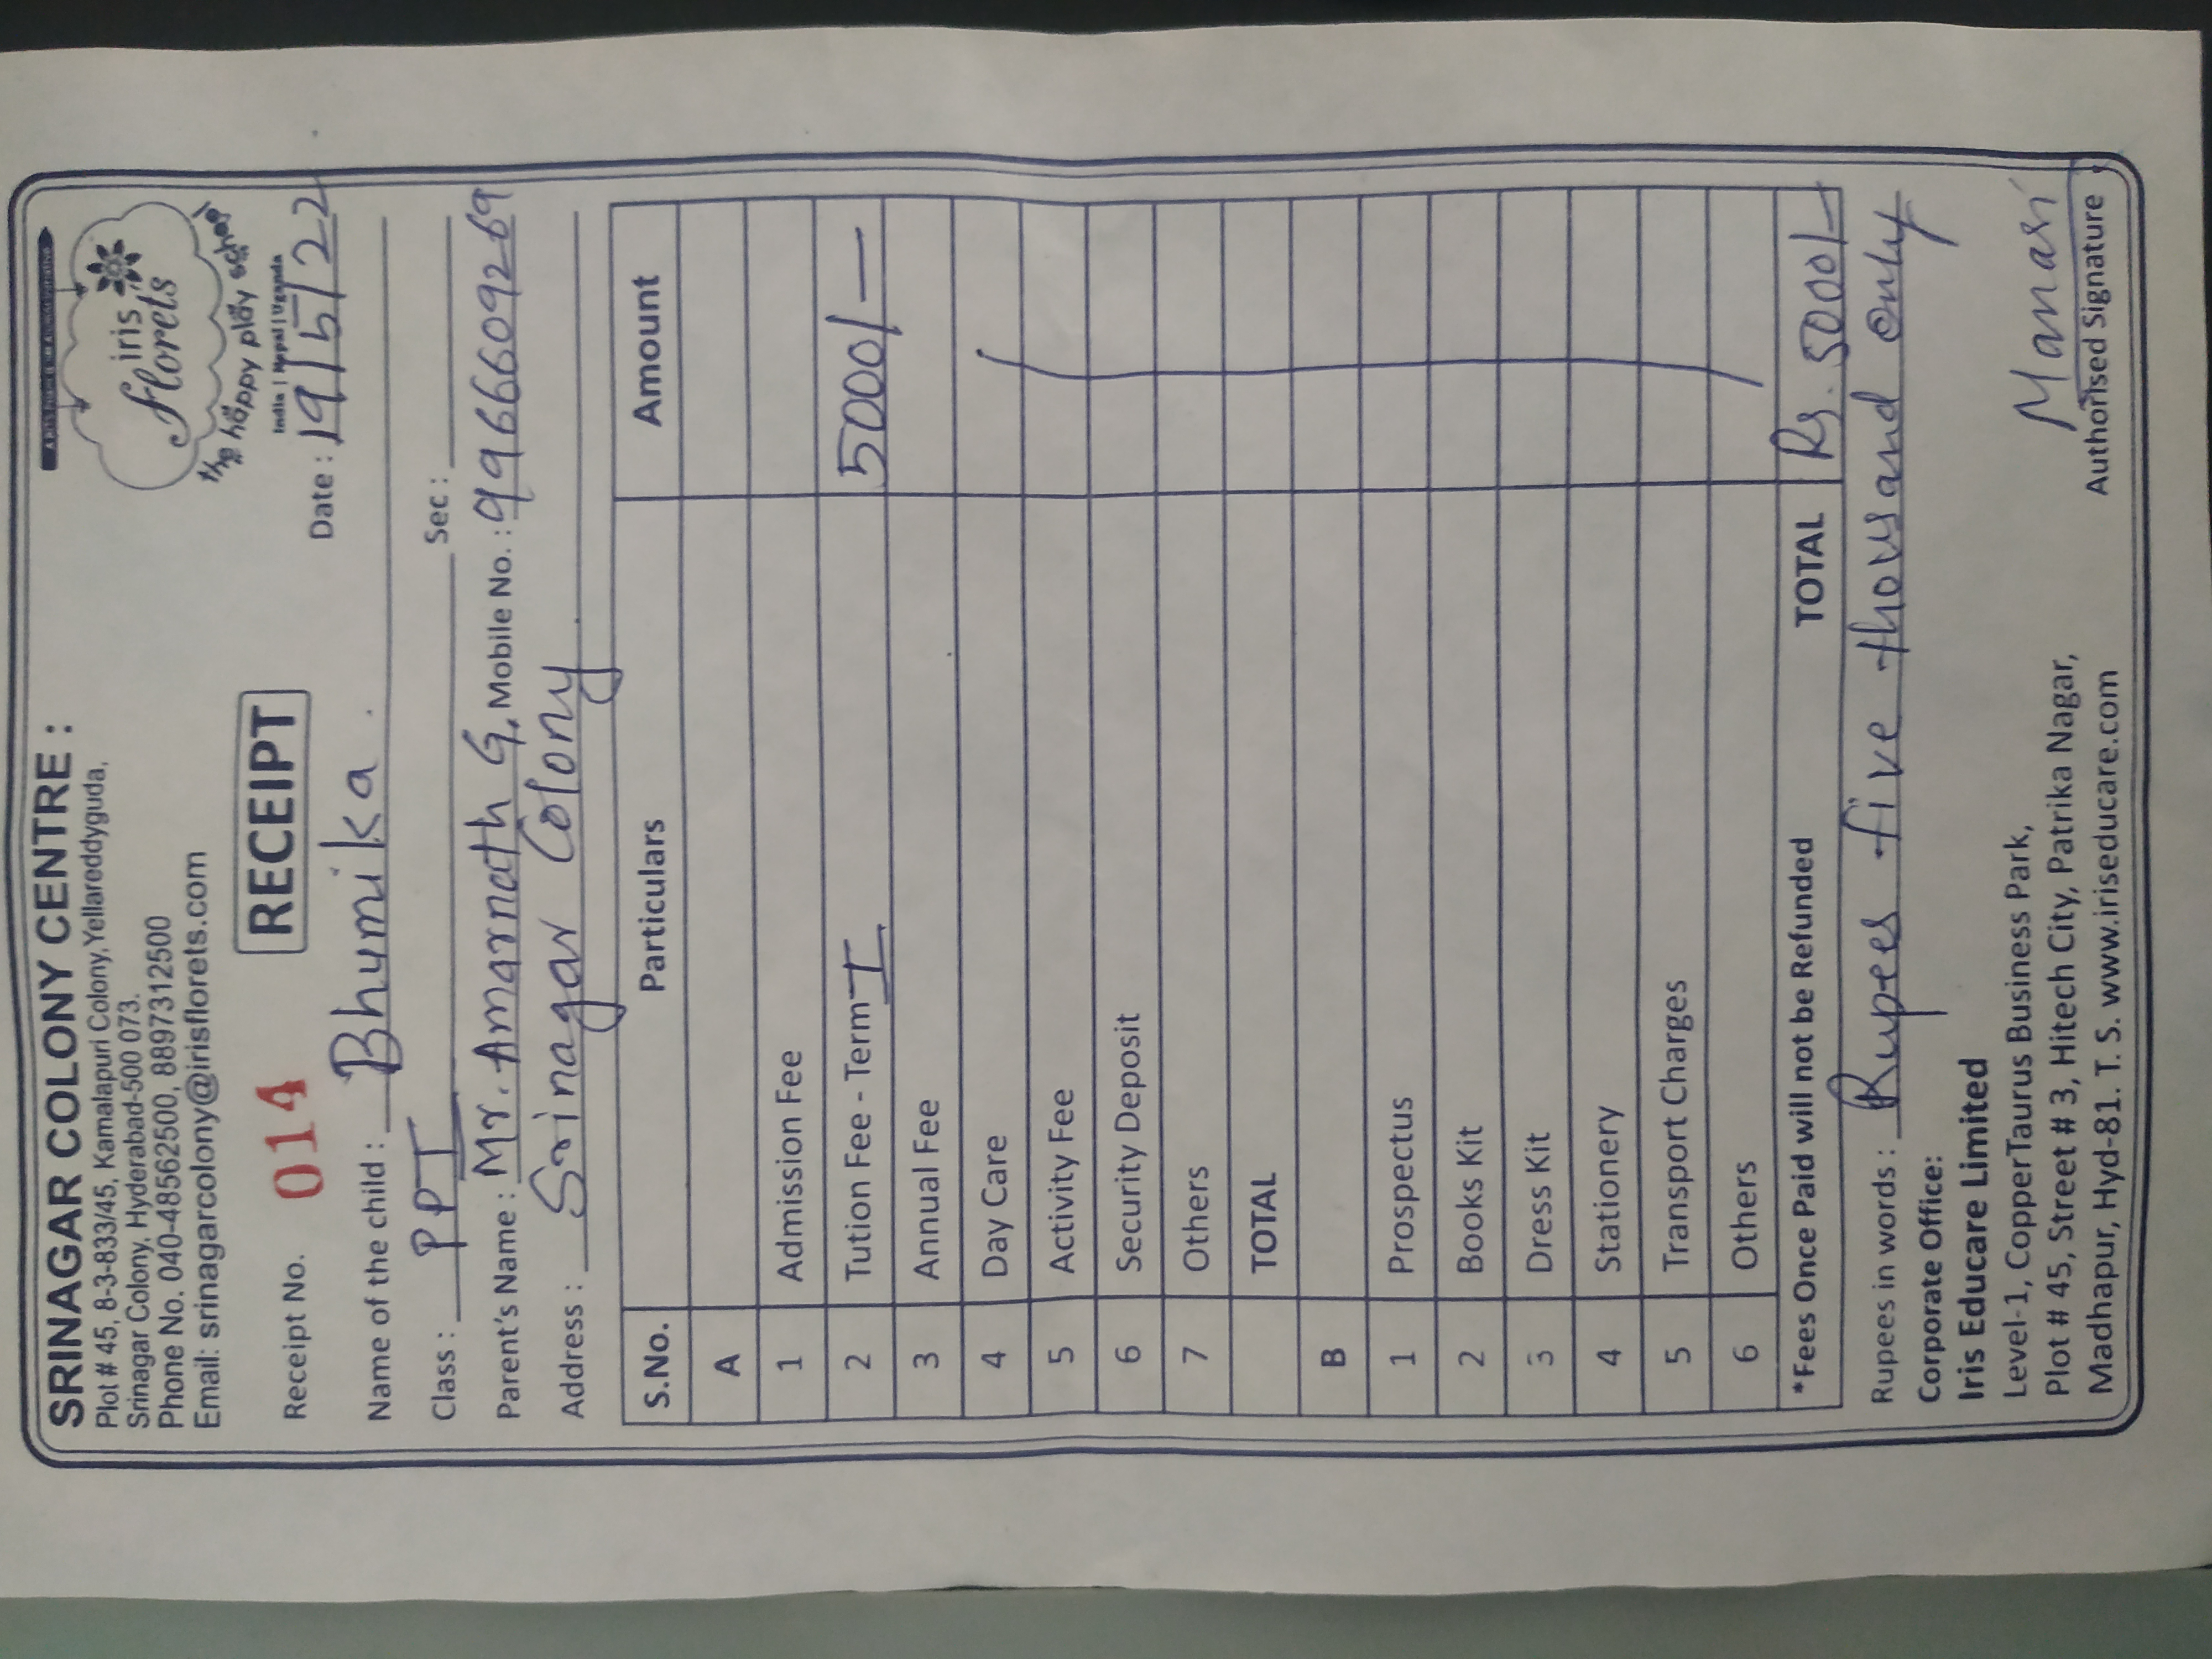 SRINAGAR COLONY CENTRE :
Plot # 45, 8-3-833/45, Kamalapuri Colony,Yellareddyguda,
Srinagar Colony, Hyderabad-500 073.
Phone No. 040-48562500, 8897312500
Email: srinagarcolony@irisflorets.com
iris
florets
the happy play school
India | Nepal | Uganda
RECEIPT
Receipt No. 014
Date : 19/5/22
Name of the child : Bhumika .
Class : PPI Sec :
Parent's Name : Mr. Amarnath G. Mobile No. : 9966609269
Address : Srinagar Colony .
S.No. Particulars Amount
A
1 Admission Fee
2 Tution Fee - Term I 5000/—
3 Annual Fee
4 Day Care
5 Activity Fee
6 Security Deposit
7 Others
TOTAL
B
1 Prospectus
2 Books Kit
3 Dress Kit
4 Stationery
5 Transport Charges
6 Others
*Fees Once Paid will not be Refunded TOTAL Rs. 5000/-
Rupees in words : Rupees five thousand only
Corporate Office:
Iris Educare Limited
Level-1, CopperTaurus Business Park,
Plot # 45, Street # 3, Hitech City, Patrika Nagar,
Madhapur, Hyd-81. T. S. www.iriseducare.com
Manasi
Authorised Signature